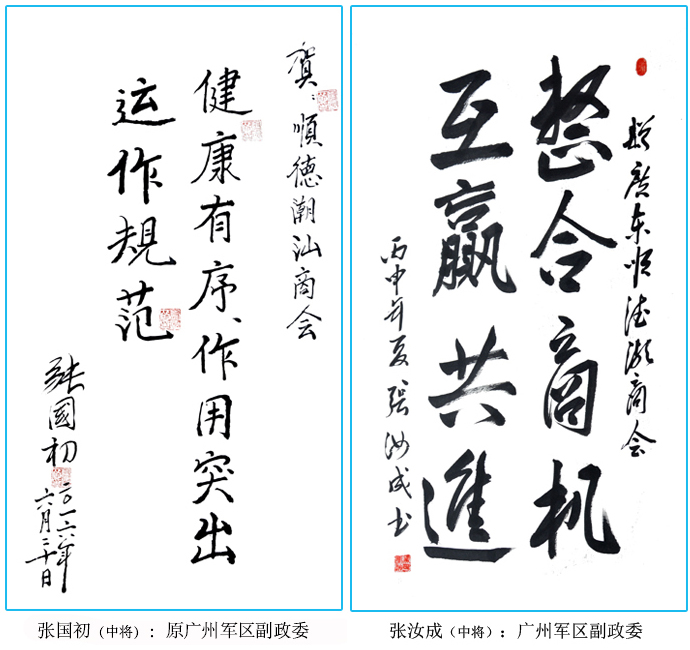 贺：順德潮汕商会
健康有序、作用突出
运作规范
张國初
二〇一六年
六月三十日
张国初（中将）：原广州军区副政委
赠广东顺德潮商会
整合商机
互赢共進
丙申年夏 张汝成书
张汝成（中将）：广州军区副政委